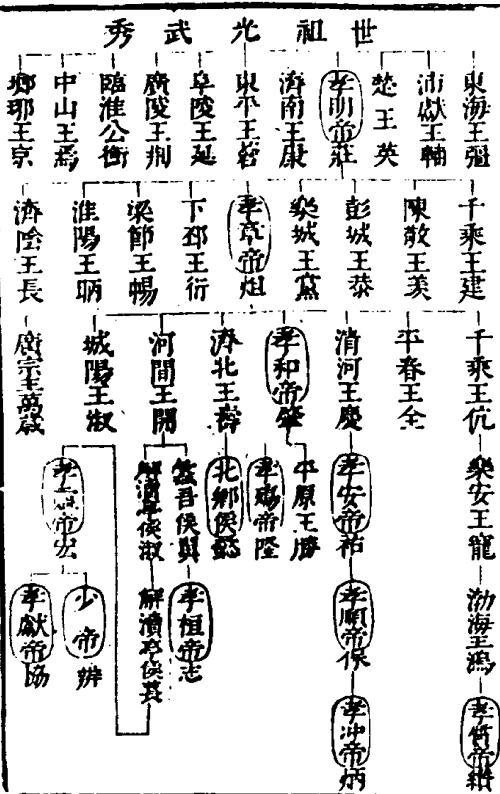 世祖光武秀
東海王彊
沛獻王輔
楚王英
孝明帝莊
濟南王康
東平王蒼
阜陵王延
廣陵王荆
臨淮公衡
中山王焉
瑯琊王京
千乘王建
陳敬王羨
彭城王恭
樂城王黨
孝章帝炟
下邳王衍
梁節王暢
淮陽王昞
濟陰王長
千乘王伉
平春王全
清河王慶
孝和帝肇
濟北王壽
河間王開
城陽王淑
廣宗王萬歲
樂安王寵
孝安帝祐
平原王勝
孝殤帝隆
北鄉侯懿
蠡吾侯翼
解瀆亭侯淑
孝靈帝宏
渤海王鴻
孝順帝保
孝桓帝志
解瀆亭侯萇
少帝辨
孝獻帝協
孝質帝纘
孝冲帝炳